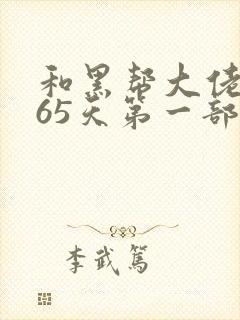 和黑帮大佬
65天第一部
李武篤